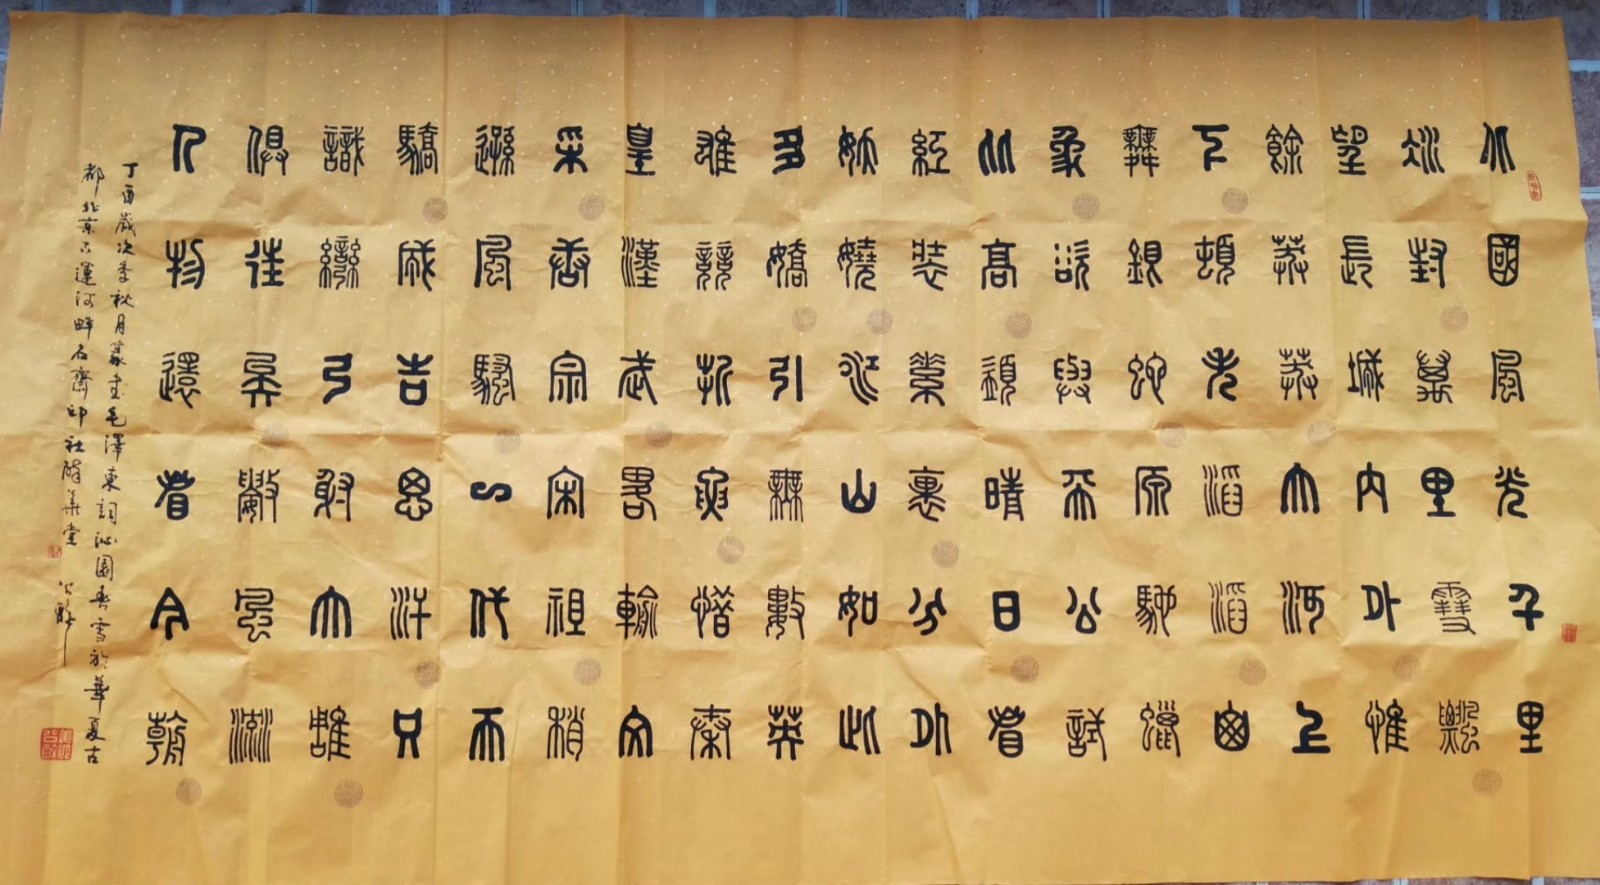 北國風光千里
冰封萬里雪飄
望長城內外惟
餘莽莽大河上
下頓失滔滔山
舞銀蛇原馳蠟
象欲與天公試
比高須晴日看
紅裝素裹分外
妖嬈江山如此
多嬌引無數英
雄競折腰惜秦
皇漢武略輸文
采唐宗宋祖稍
遜風騷一代天
驕成吉思汗只
識彎弓射大雕
俱往矣數風流
人物還看今朝
丁酉歲次季秋月篆書毛澤東詞沁園春雪於華夏古
都北京古運河畔石齋印社